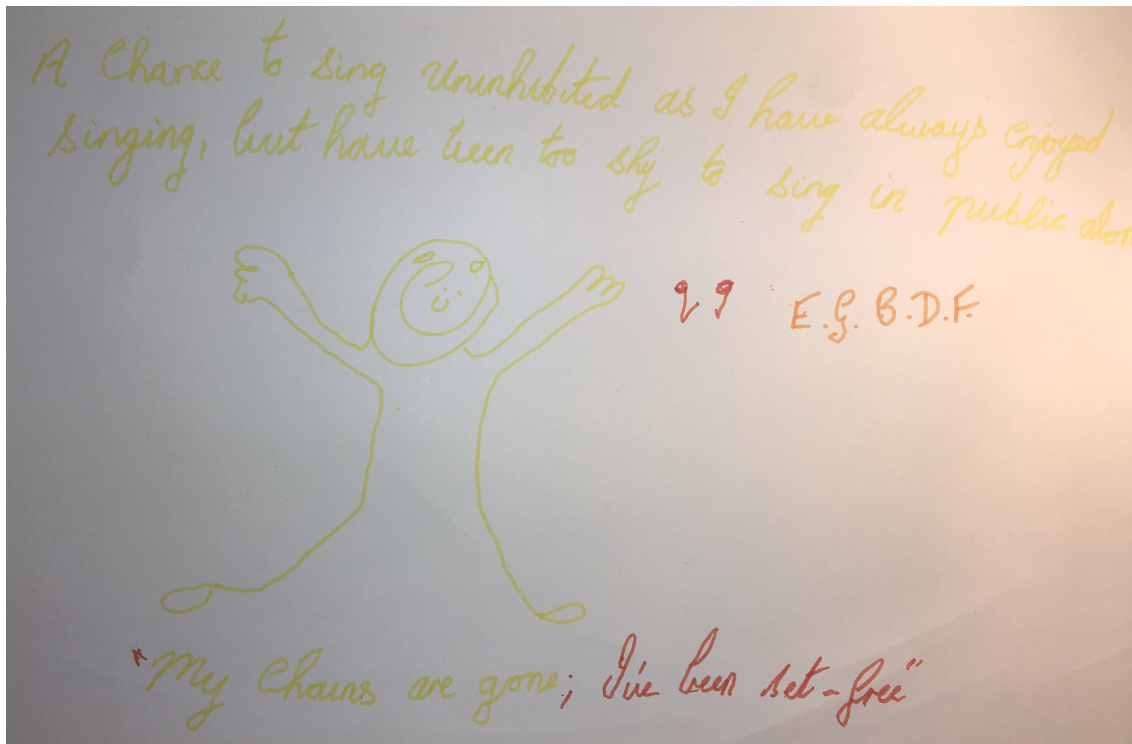 A Chance to sing Uninhibited as I have always enjoyed
singing, but have been too shy to sing in public
E.G.B.D.F.
"My Chains are gone; I've been set-free"